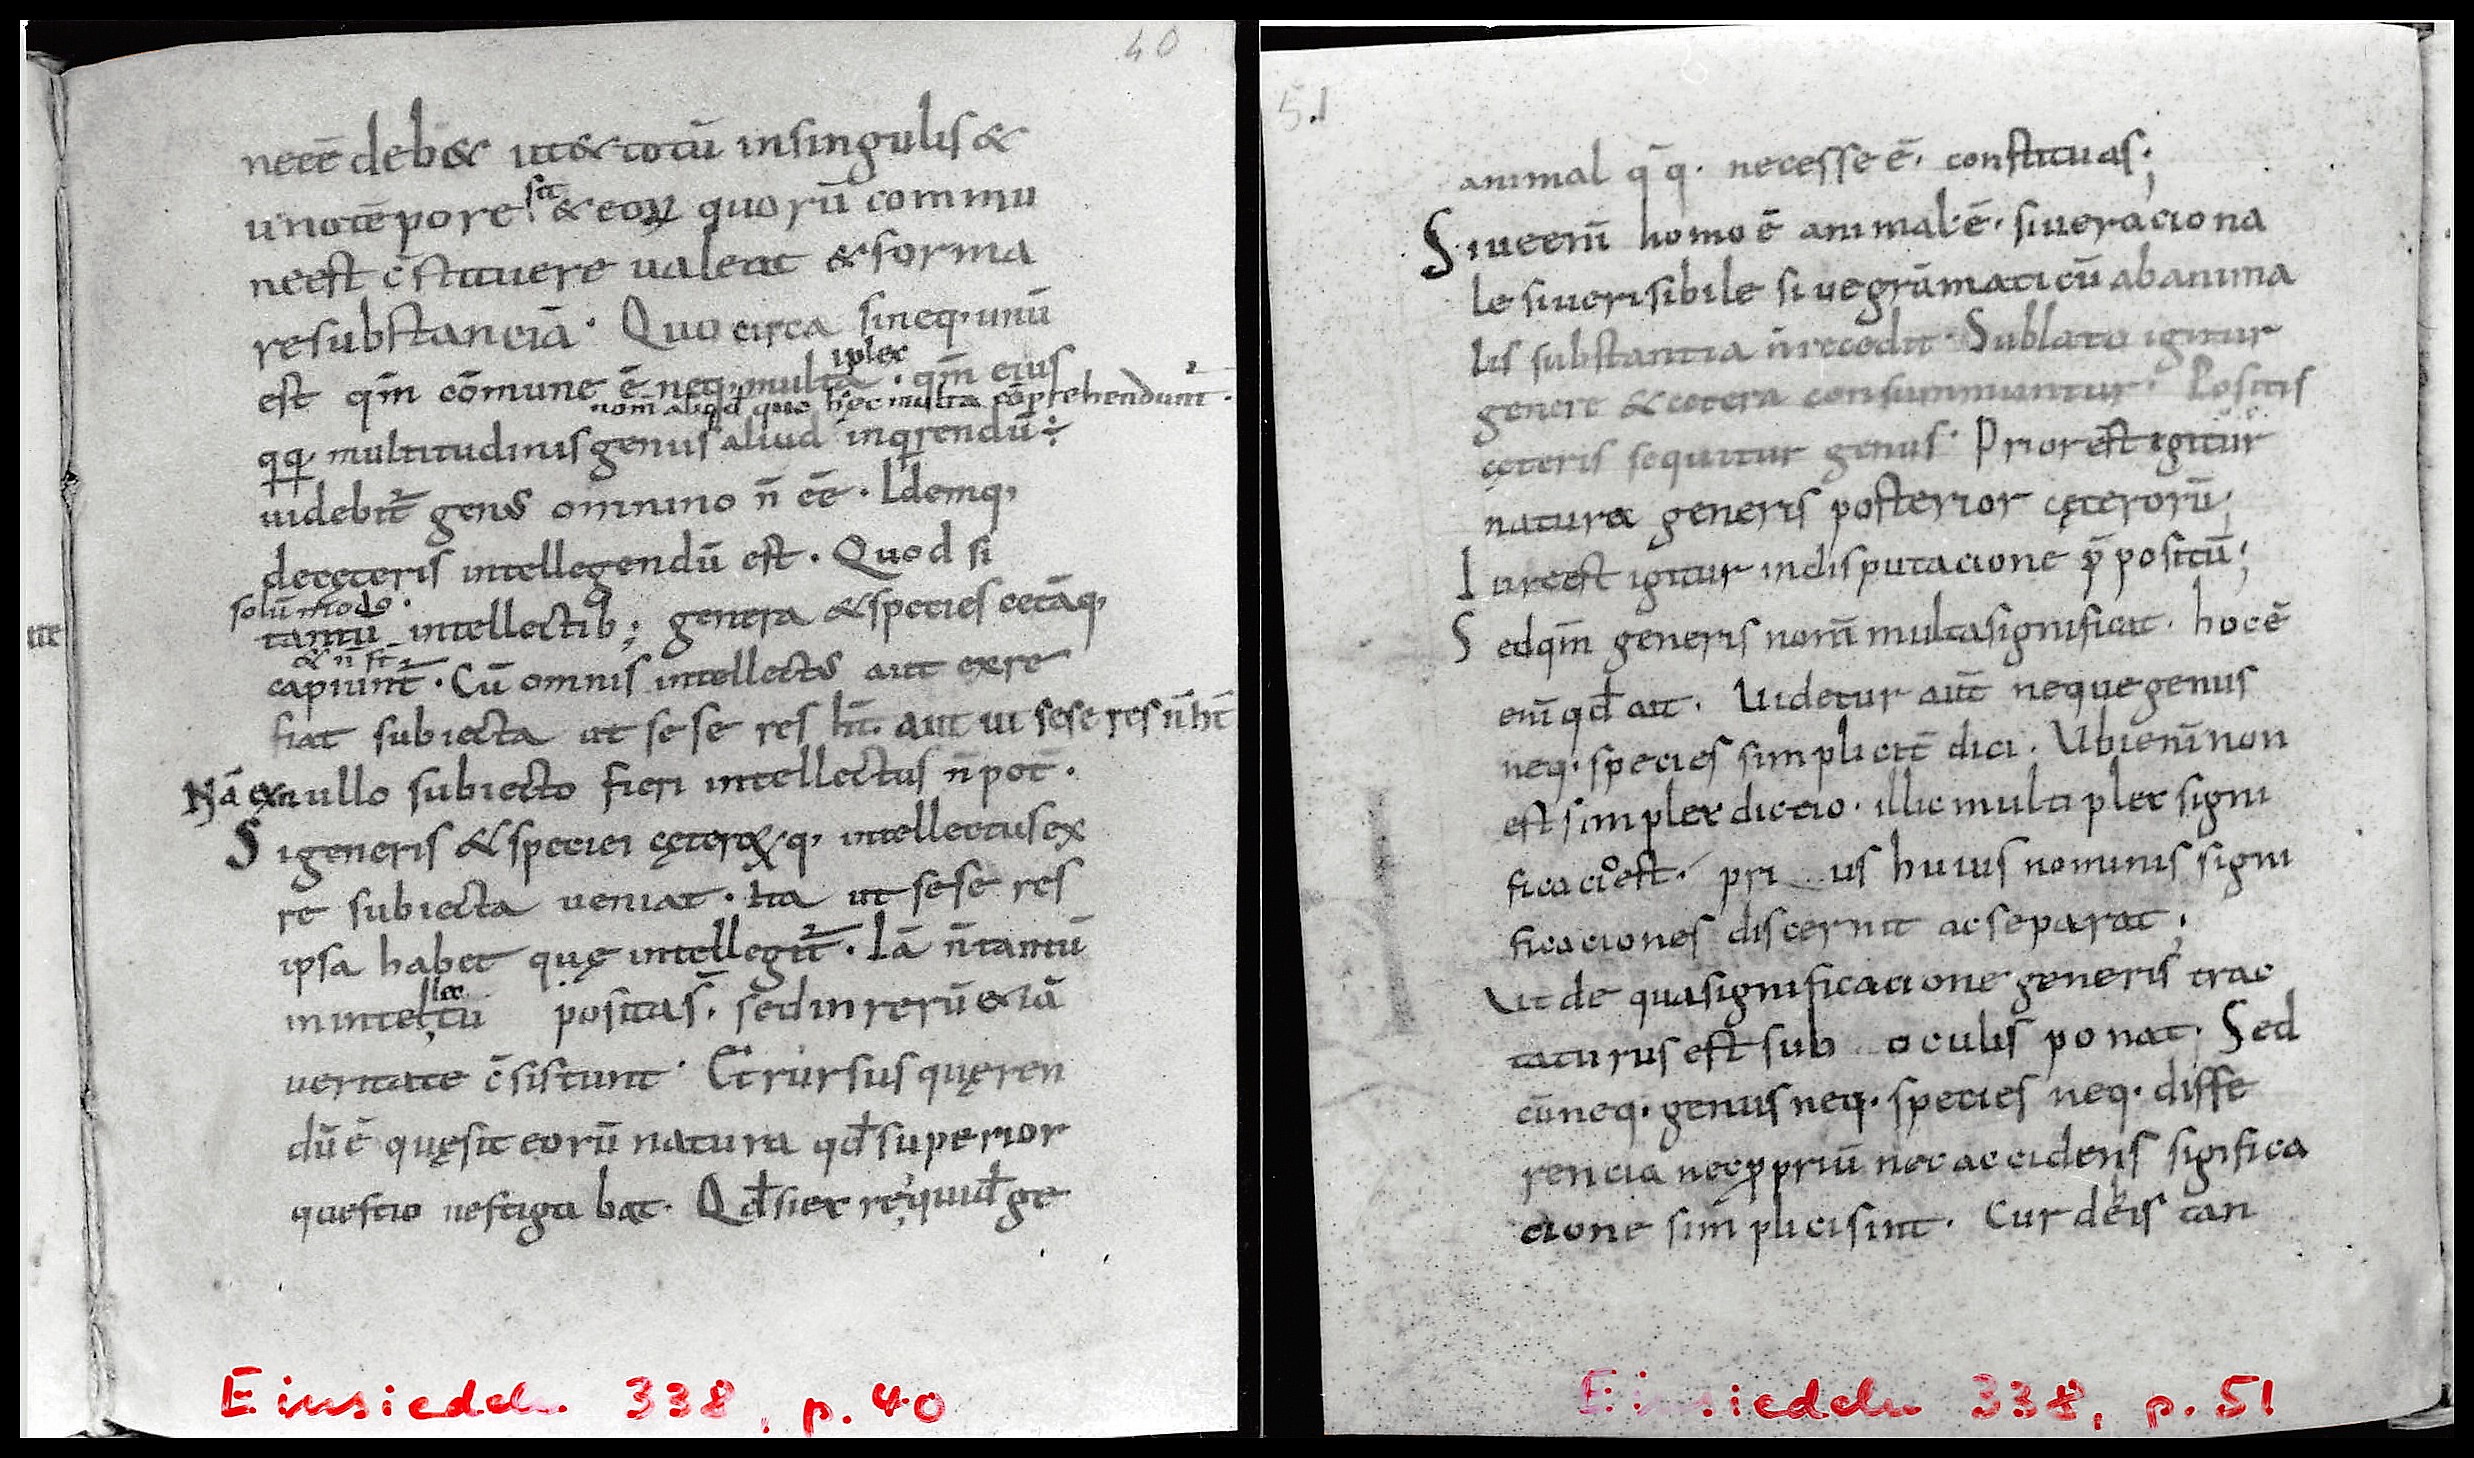 40
necē deb& ut&totū insingulis &
unotēpore sit &eoꝝ quorū commu
neest c̄stituere ualeat &forma
resubstanciā. Quo circa sineq. unū
est qm̄ cōmune ē neq. multa iplex . qm̄ eius
nom̄ aliqd quo hec multa cōprehendunt.
qq multitudinis genus aliud inq̄rendū;
uidebit̄ genus omnino n̄ eē. Idemq,
decęteris intellegendū est. Quod si
solūmodo.
tantū intellectib; genera &species cetāq,
& n̄ st
capiunt̄. Cū omnis intellectus aut exre
fiat subiecta ut sese res ht̄. aut ut sese res n̄ ht̄
Nā exnullo subiecto fieri intellectus n̄ pot̄.
Sigeneris &speciei cęteroꝝq, intellectusex
re subiecta ueniat. Ita ut sese res
ipsa habet quę intellegit̄. Iā n̄tantū
llec
inintectu posita s̄. sedinrerū&iā
ueritate c̄sistunt. Et rursus quęren
dū ē quęsit eorū natura qđ superior
questio uestiga bat. Qđ siex re quidē ge
ut
Einsiedeln 338, p. 40
51
animal q̄q. necesse ē. constituas;
Siueenī homo ē animal ē. siueraciona
le siuerisibile siuegrāmaticū abanima
lis substantia n̄recedit. Sublato igitur
genere &cetera consummuntur. Positis
cęteris sequitur genus. Priorest igitur
natura generis posterior cęterorū;
Iureest igitur indisputacione p̄positū;
Sedqm̄ generis nom̄ multasignificat. hoc ē
enī qđ ait. Uidetur aut̄ nequegenus
neq. species simplicit̄ dici. Ubienī non
est simplex diccio. illic multiplex signi
ficacioest. pri us huius nominis signi
ficaciones discernit acseparat;
Ut de quasignificacione generis trac
taturusest sub oculis ponat. Sed
cūneq. genus neq. species neq. diffe
rencia necꝓpriū nec accidens significa
cione simplicisint. Cur deheis tan
Einsiedeln 338, p. 51